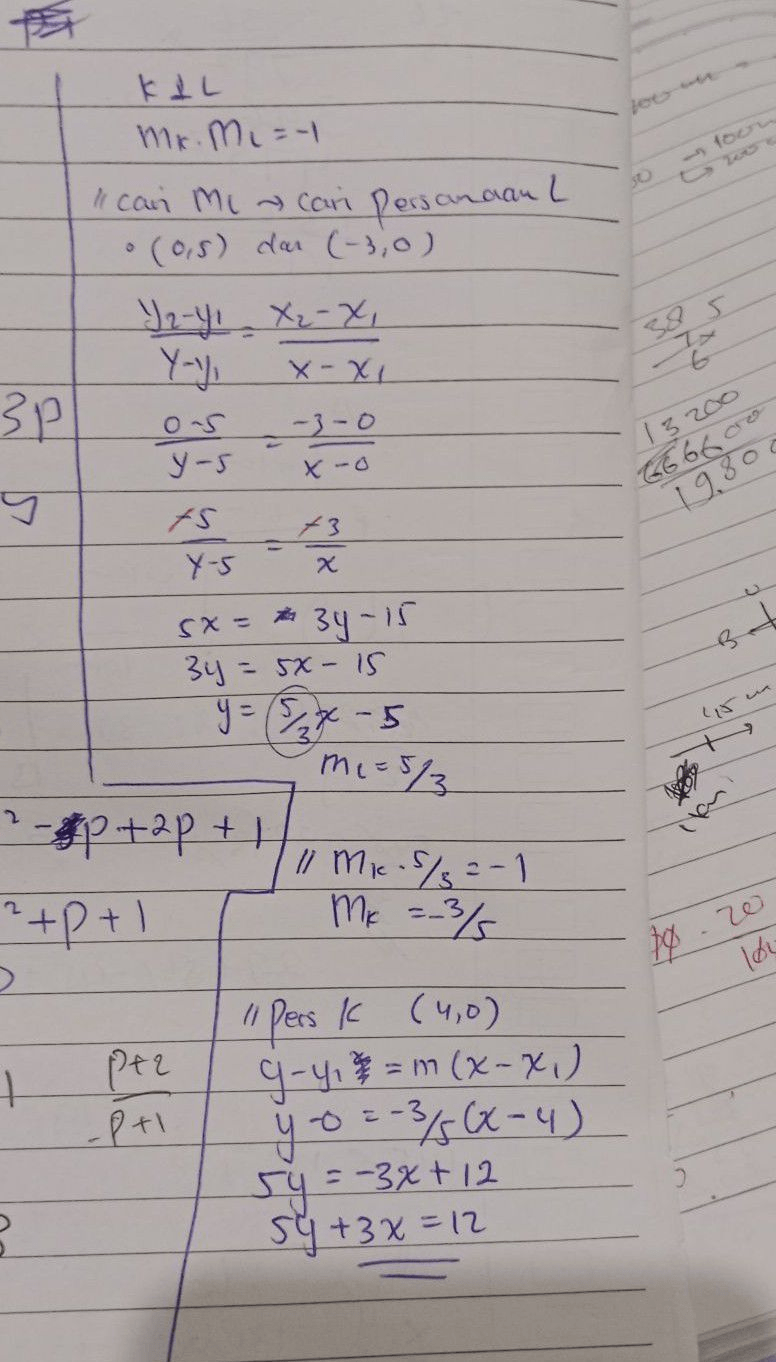 K ⊥ L
mK . mL = -1
// cari mL → cari persamaan L
• (0,5) dan (-3,0)
y2-y1/y-y1 = x2-x1/x-x1
0-5/y-5 = -3-0/x-0
-5/y-5 = -3/x
5x = 3y-15
3y = 5x-15
y = 5/3x - 5
mL = 5/3
// mK . 5/3 = -1
mK = -3/5
// Pers K (4,0)
y-y1 = m(x-x1)
y-0 = -3/5(x-4)
5y = -3x+12
5y+3x = 12
3p
y
² - p + 2p + 1
² + p + 1
1
p+2/-p+1
38 5
6
13200
666600
19.800
B
1,5 m
. 20